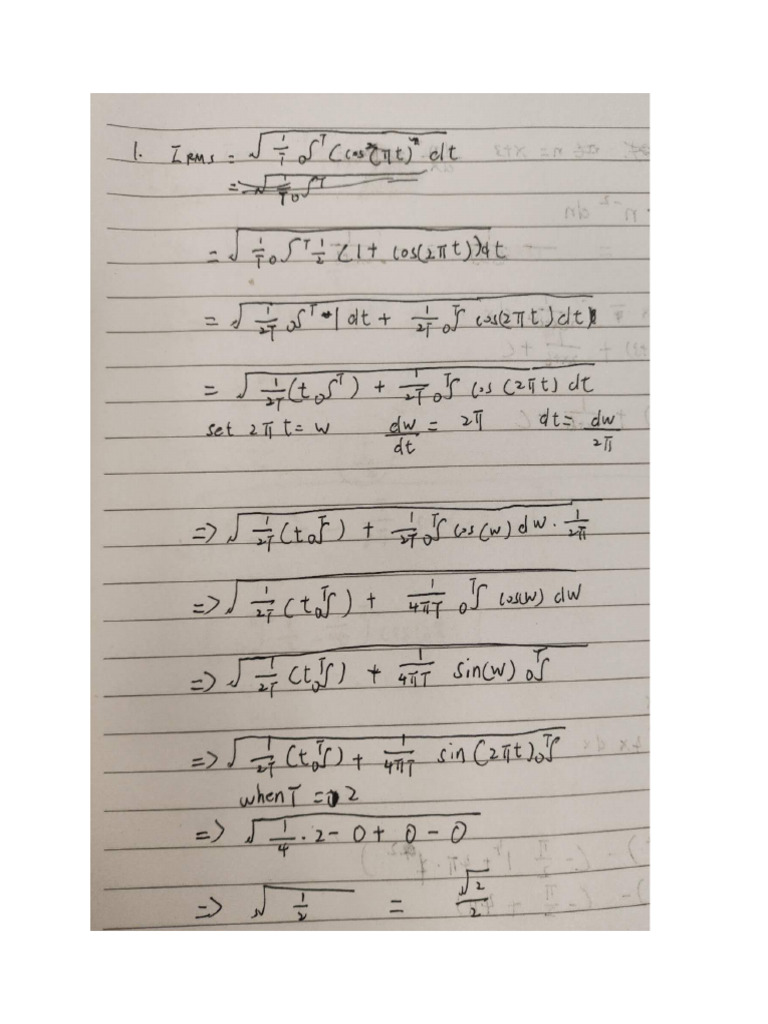 1. I RMS = √(1/T ₀∫ᵀ (cos(πt))² dt)
= √(1/T ₀∫ᵀ
= √(1/T ₀∫ᵀ 1/2 (1 + cos(2πt))dt)
= √(1/2T ₀∫ᵀ 1 dt + 1/2T ₀∫ᵀ cos(2πt) dt)
= √(1/2T (t ₀∫ᵀ) + 1/2T ₀∫ᵀ cos (2πt) dt)
set 2πt = w dw/dt = 2π dt = dw/2π
=> √(1/2T (t ₀∫ᵀ) + 1/2T ₀∫ᵀ cos(w) dw · 1/2π)
=> √(1/2T (t ₀∫ᵀ) + 1/4πT ₀∫ᵀ cos(w) dw)
=> √(1/2T (t ₀∫ᵀ) + 1/4πT sin(w) ₀∫ᵀ)
=> √(1/2T (t ₀∫ᵀ) + 1/4πT sin(2πt) ₀∫ᵀ)
when T = 2
=> √(1/4 · 2 - 0 + 0 - 0)
=> √(1/2) = √2/2